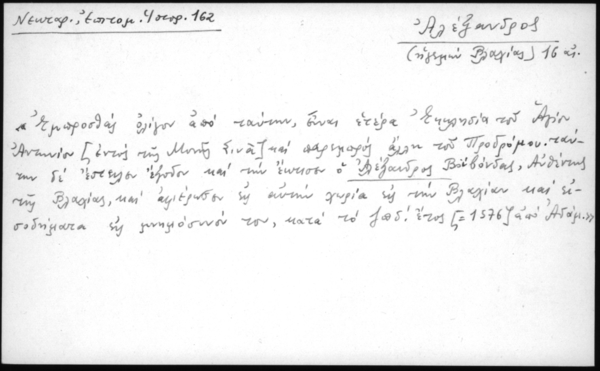 Νεκταρ., Ἐπιτομ. Ἱστορ. 162
Ἀλέξανδρος
(ἡγεμών Βλαχίας) 16 αἰ.
«Ἔμπροσθεν ὀλίγον ἀπό ταύτην, εἶναι ἑτέρα Ἐκκλησία τοῦ Ἁγίου
Ἀντωνίου [ἐντός τῆς Μονῆς Σινᾶ] καί παρεμπρός ἄλλη τοῦ Προδρόμου. ταύ-
την δέ ἔστειλεν ἔξοδον καί τήν ἔκτισεν ὁ Ἀλέξανδρος Βοϊβόνδας, Αὐθέντης
τῆς Βλαχίας, καί ἀφιέρωσεν εἰς αὐτήν χωρία εἰς τήν Βλαχίαν καί εἰ-
σοδήματα εἰς μνημόσυνόν του, κατά τό ζπδ΄. ἔτος [=1576] ἀπό Ἀδάμ.»